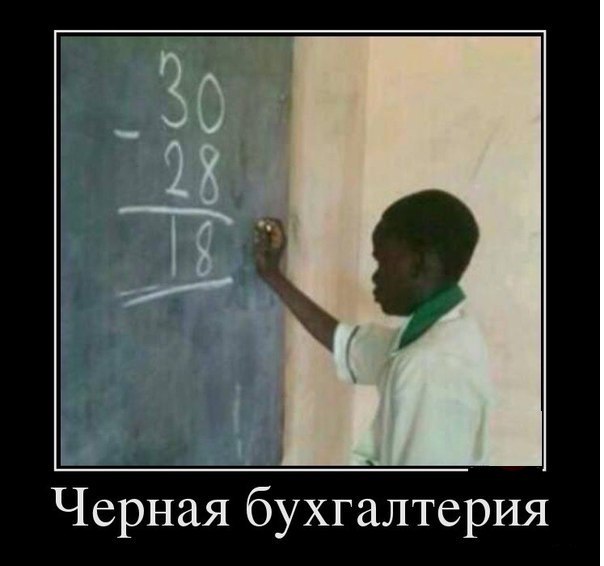 30
- 28
18
Черная бухгалтерия